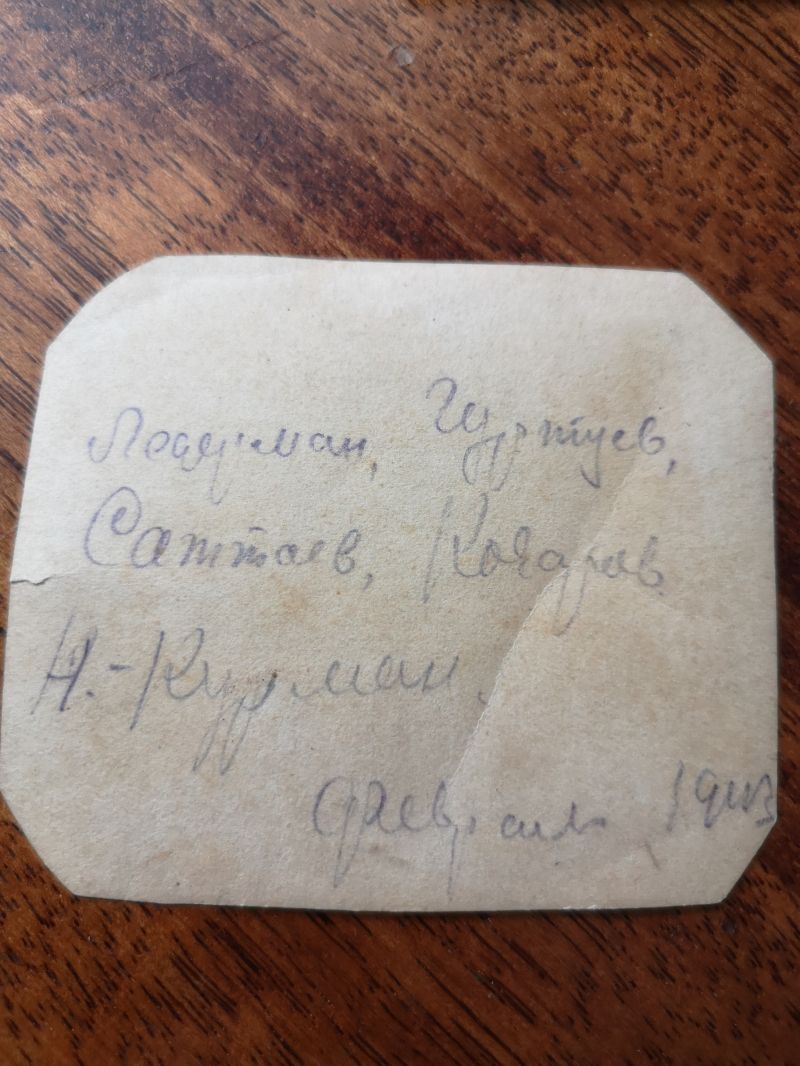 Ледерман, Чуртуев,
Саттаев, Кочаров
Н.-Курман.
февраль 1943